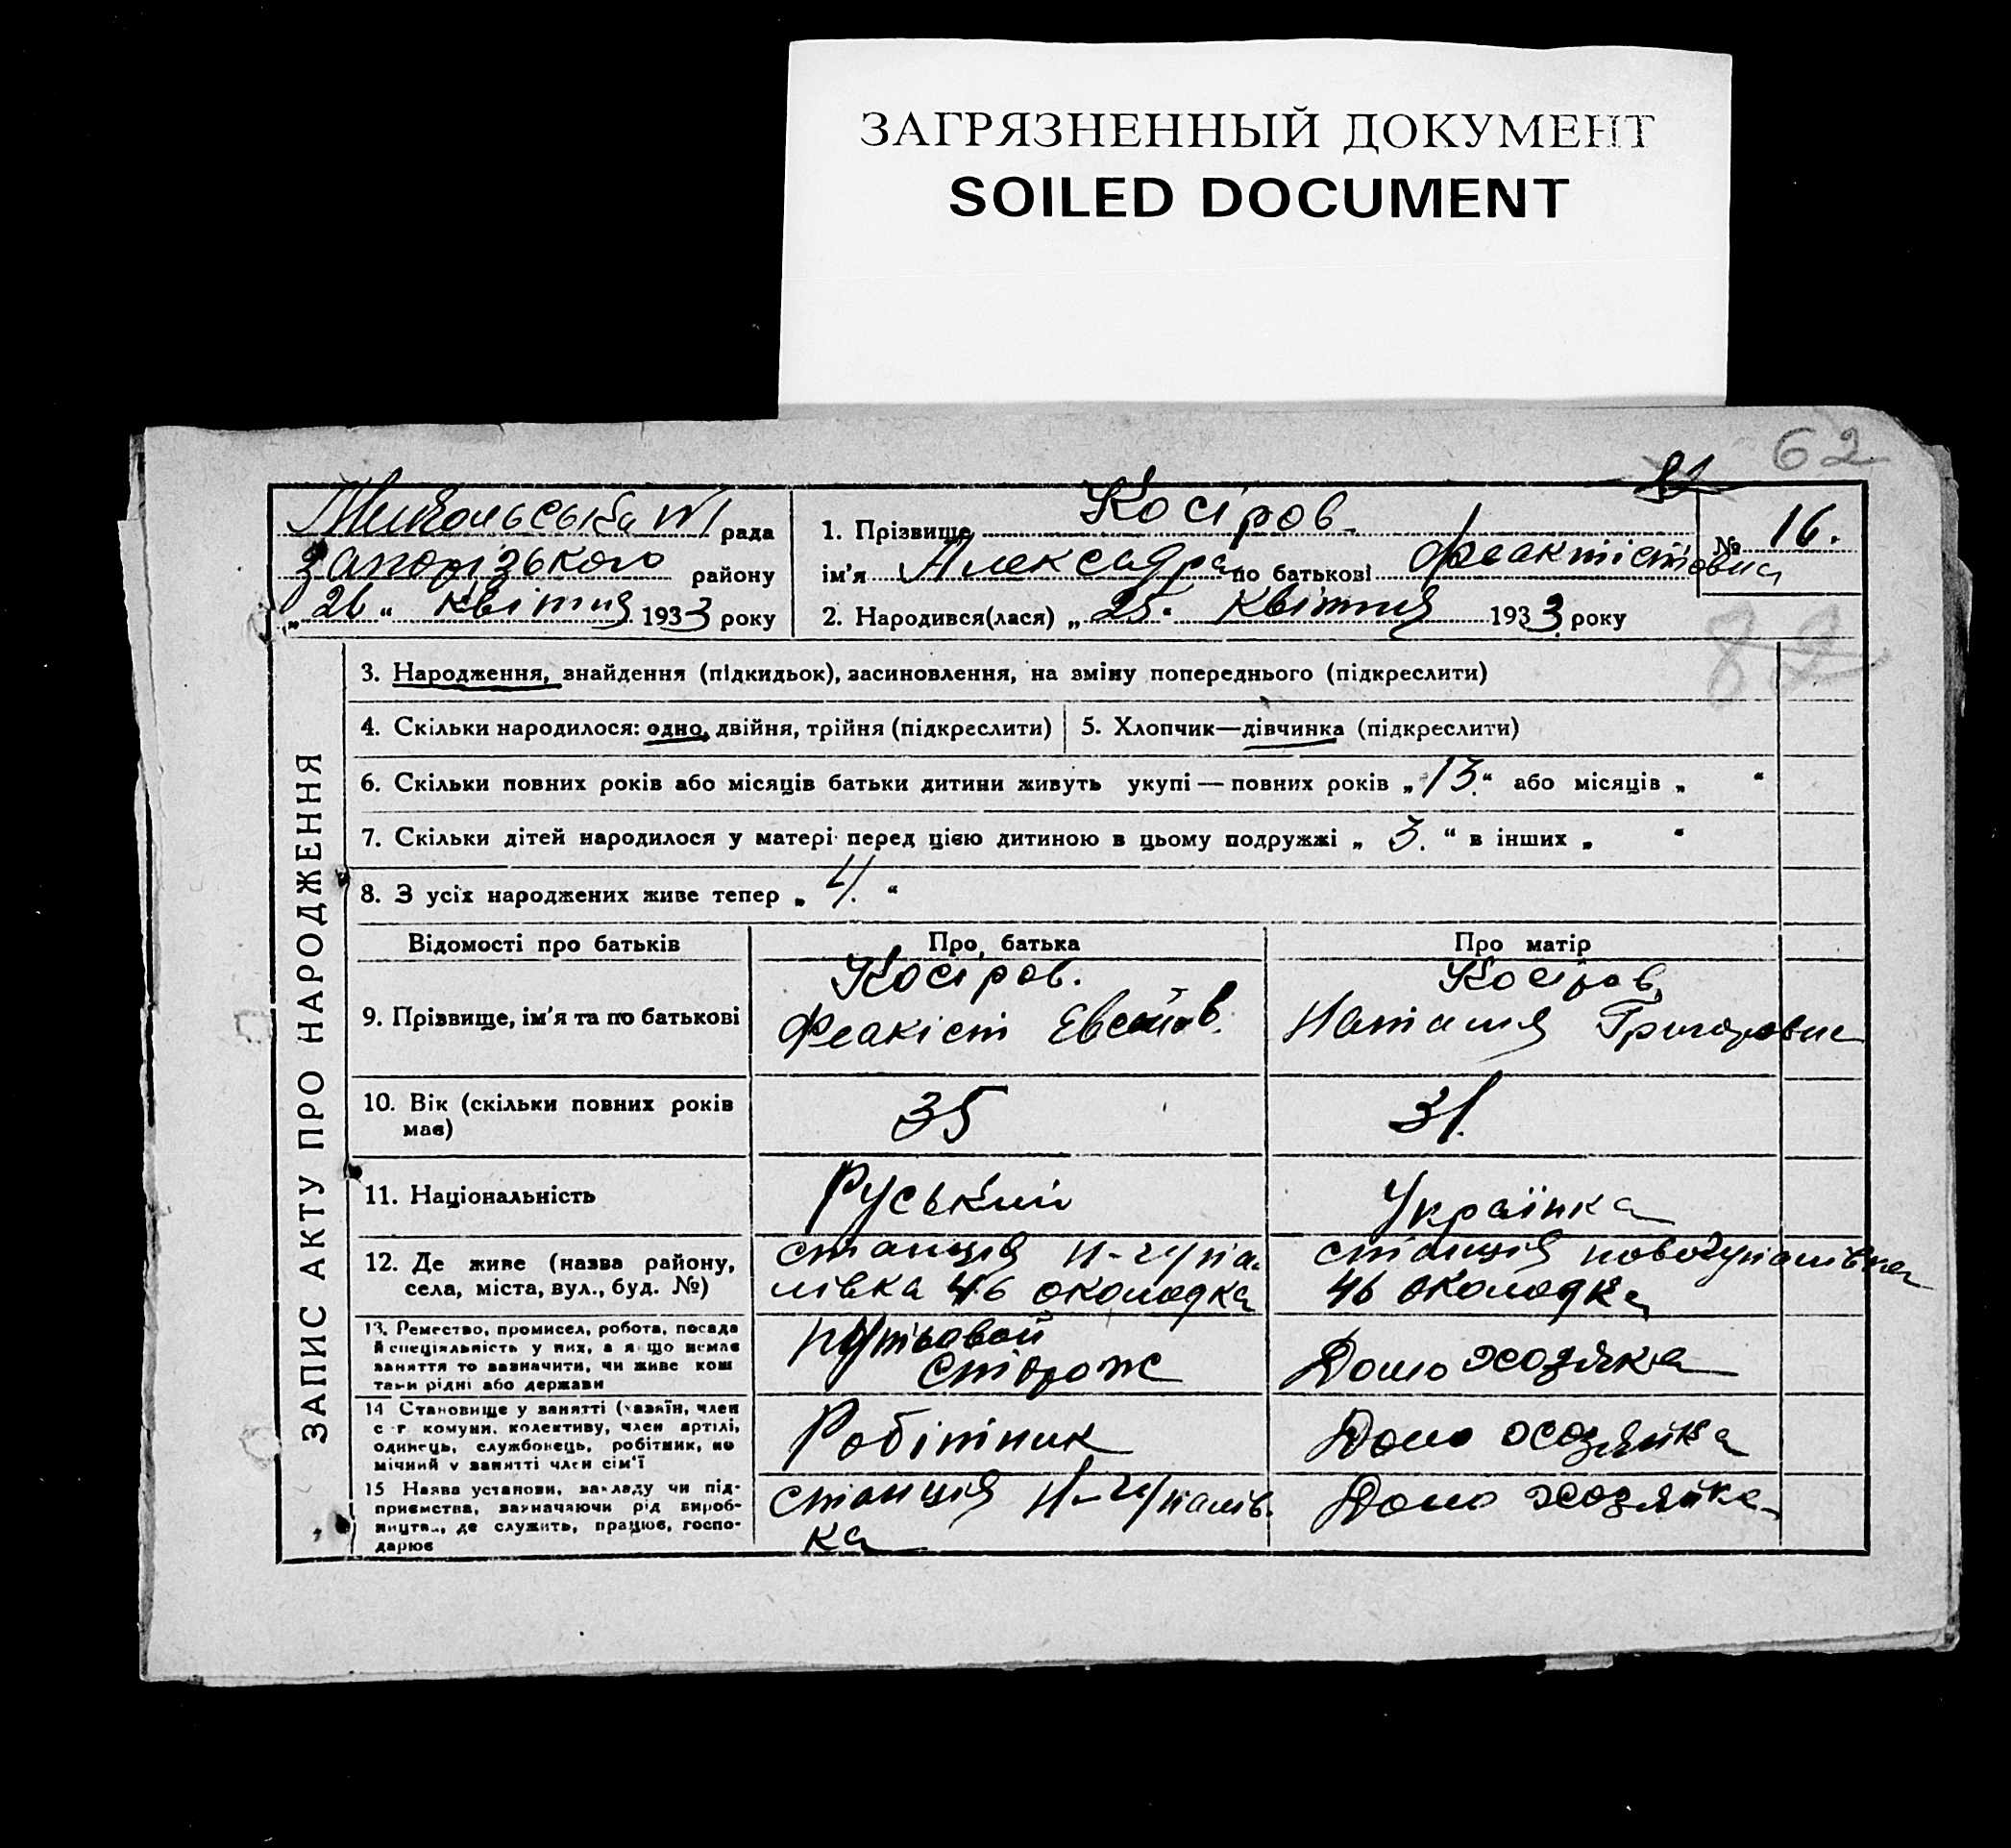 ЗАГРЯЗНЕННЫЙ ДОКУМЕНТ
SOILED DOCUMENT
62
Микольська рада
Запорізького району
„26“ квітня 1933 року
1. Прізвище Косіров
ім'я Александра по батькові Феактістовна
2. Народився(лася) „25“ квітня 1933 року
№ 16.
82
ЗАПИС АКТУ ПРО НАРОДЖЕННЯ
3. Народження, знайдення (підкидьок), засиновлення, на зміну попереднього (підкреслити)
4. Скільки народилося: одно, двійня, трійня (підкреслити)
5. Хлопчик—дівчинка (підкреслити)
6. Скільки повних років або місяців батьки дитини живуть укупі — повних років „13.“ або місяців „ “
7. Скільки дітей народилося у матері перед цією дитиною в цьому подружжі „3.“ в інших „ “
8. З усіх народжених живе тепер „4.“
Відомості про батьків
Про батька
Про матір
9. Прізвище, ім'я та по батькові
Косіров.
Феакіст Евсейов.
Косіров,
Наталія Григоровна
10. Вік (скільки повних років має)
35
31.
11. Національність
Руський
Українка
12. Де живе (назва району,
села, міста, вул., буд. №)
станція Н-Гупа-
лівка 46 околодка
станція новогупалівка
46 околодка
13. Ремество, промисел, робота, посада
й спеціяльність у них, а якщо немає
заняття то зазначити, чи живе кош
тами рідні або держави
путьовой
сторож
Домохозяйка
14 Становище у занятті (хазяїн, член
с-г. комуни, колективу, член артілі,
одинець, службовець, робітник, по
мічний у занятті член сім'ї
Робітник
Домохозяйка
15 Назва установи, закладу чи під-
приємства, зазначаючи рід вироб-
ництва, де служить, працює, госпо-
дарює
станція Н-Гупалів-
ка
Домохозяйка